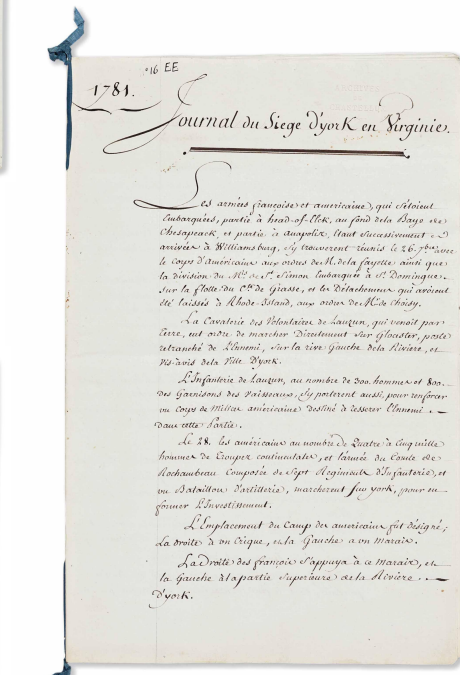 n°16 EE
1781.
Journal du Siege D'york en Virginie.
Les armées françoise et americaine, qui s'étoient
Embarquées, partie à head-of-Elck, au fond dela Baye de
Chesapeack, et partie à anapolis, étant Successivement
arrivées à Williamsburg, s'y trouverent réunis le 26. 7bre avec
le Corps d'Américains aux ordres de M. de la fayette ainsi que
la division du Mis. de St. Simon Embarquée à St. Domingue
Sur la flotte du Cte. de Grasse, et les Détachemens qui avoient
été laissés à Rhode-Island, aux ordres de M. de Choisy.
La Cavalerie des Volontaires de Lauzun, qui venoit par
terre, eut ordre de marcher Directement sur Glocester, poste
retranché de l'Ennemi, Sur la rive Gauche dela Riviere, et
vis-avis dela Ville D'york.
L'Infanterie de Lauzun, au nombre de 300. hommes et 800.
des Garnisons des Vaisseaux, s'y porterent aussi, pour renforcer
un corps de Milices américaines destiné à resserrer l'Ennemi
dans cette Partie.
Le 28. les américains au nombre de Quatre à Cinq mille
hommes de Troupes continentales, et l'armée du Comte de
Rochambeau Composée de Sept Regimens d'Infanterie, et
un Bataillon d'artillerie, marcherent sur york, pour en
former l'Investissement.
L'Emplacement du Camp des americains fut désigné;
La droite à un Crique, et la Gauche à un Marais.
La Droite des françois s'appuya à ce Marais, et
la Gauche à la partie Superieure de la Riviere
D'york.